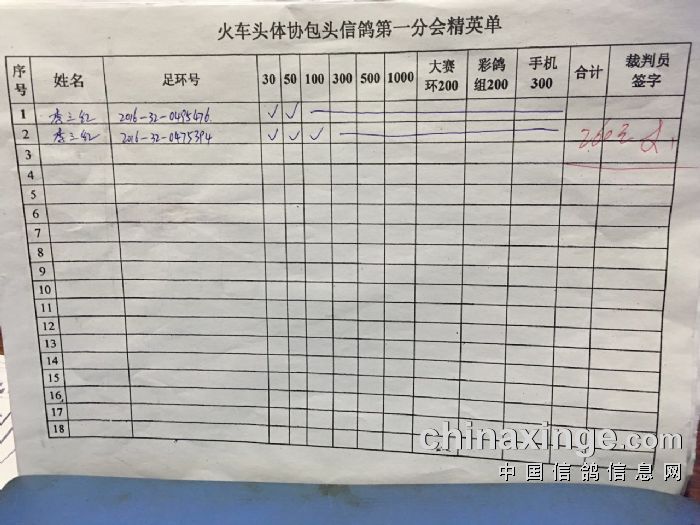 火车头体协包头信鸽第一分会精英单
序号 姓名 足环号 30 50 100 300 500 1000 大赛环200 彩鸽组200 手机300 合计 裁判员签字
1 李三红 2016-32-0495476 ✓ ✓
2 李三红 2016-32-0475394 ✓ ✓ ✓ 260元
3
4
5
6
7
8
9
10
11
12
13
14
15
16
17
18
chinaxinge.com
中国信鸽信息网